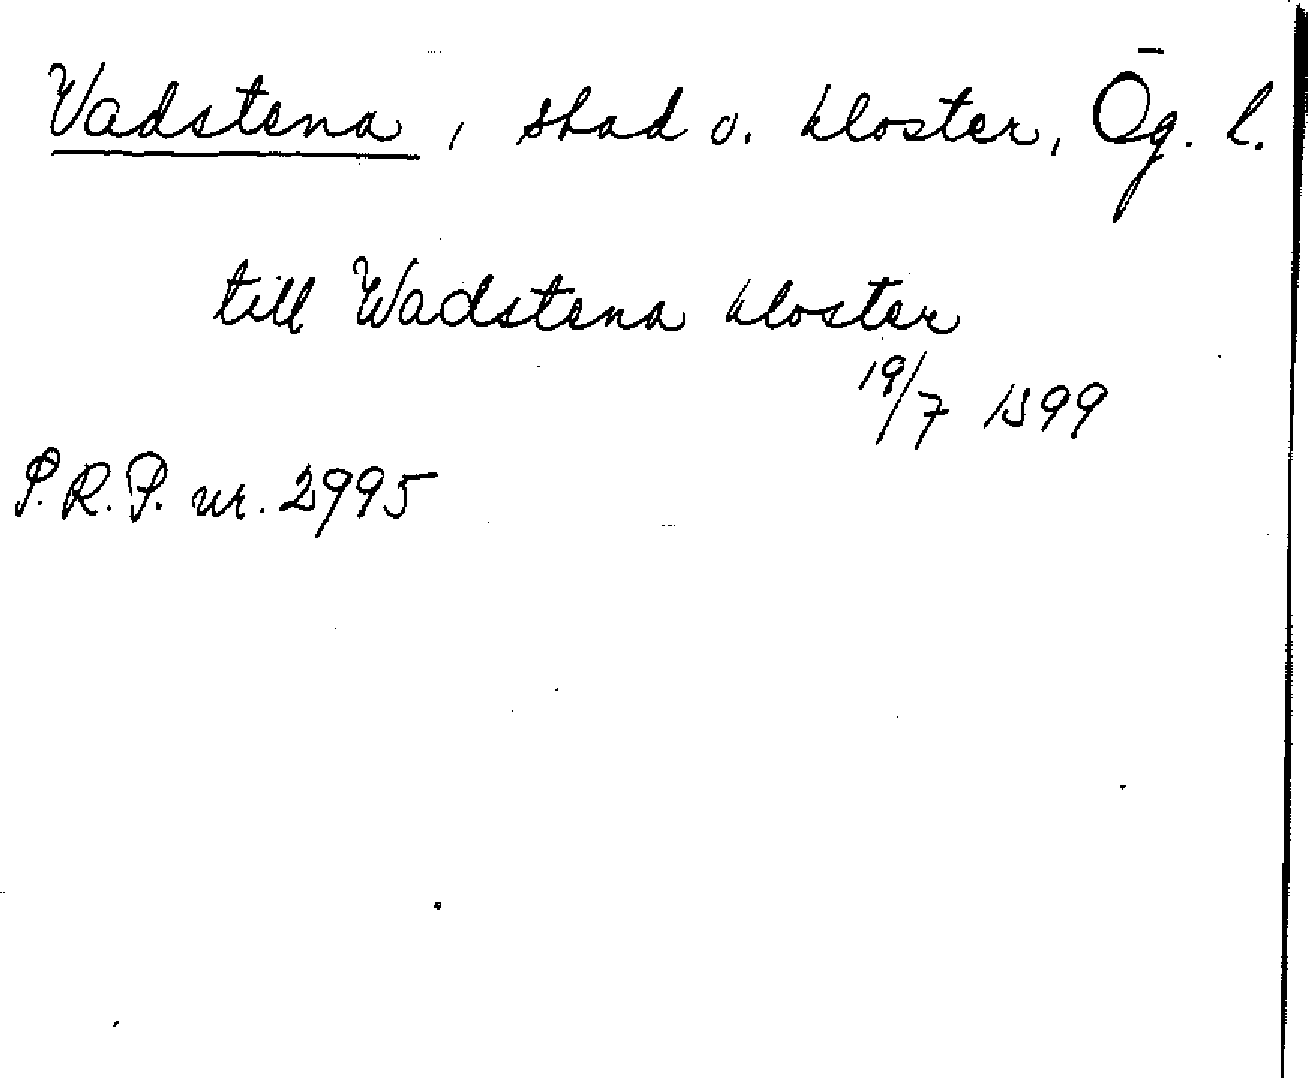 Vadstena, stad o. kloster, Ög. l.
till Wadstena kloster
19/7 1399
P.R.P. nr. 2995